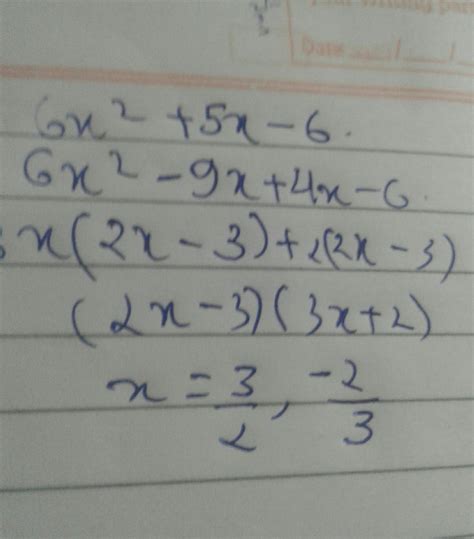 Date ..../..../
6x² + 5x - 6.
6x² - 9x + 4x - 6.
3x(2x - 3) + 2(2x - 3)
(2x - 3)(3x + 2)
x = 3/2, -2/3